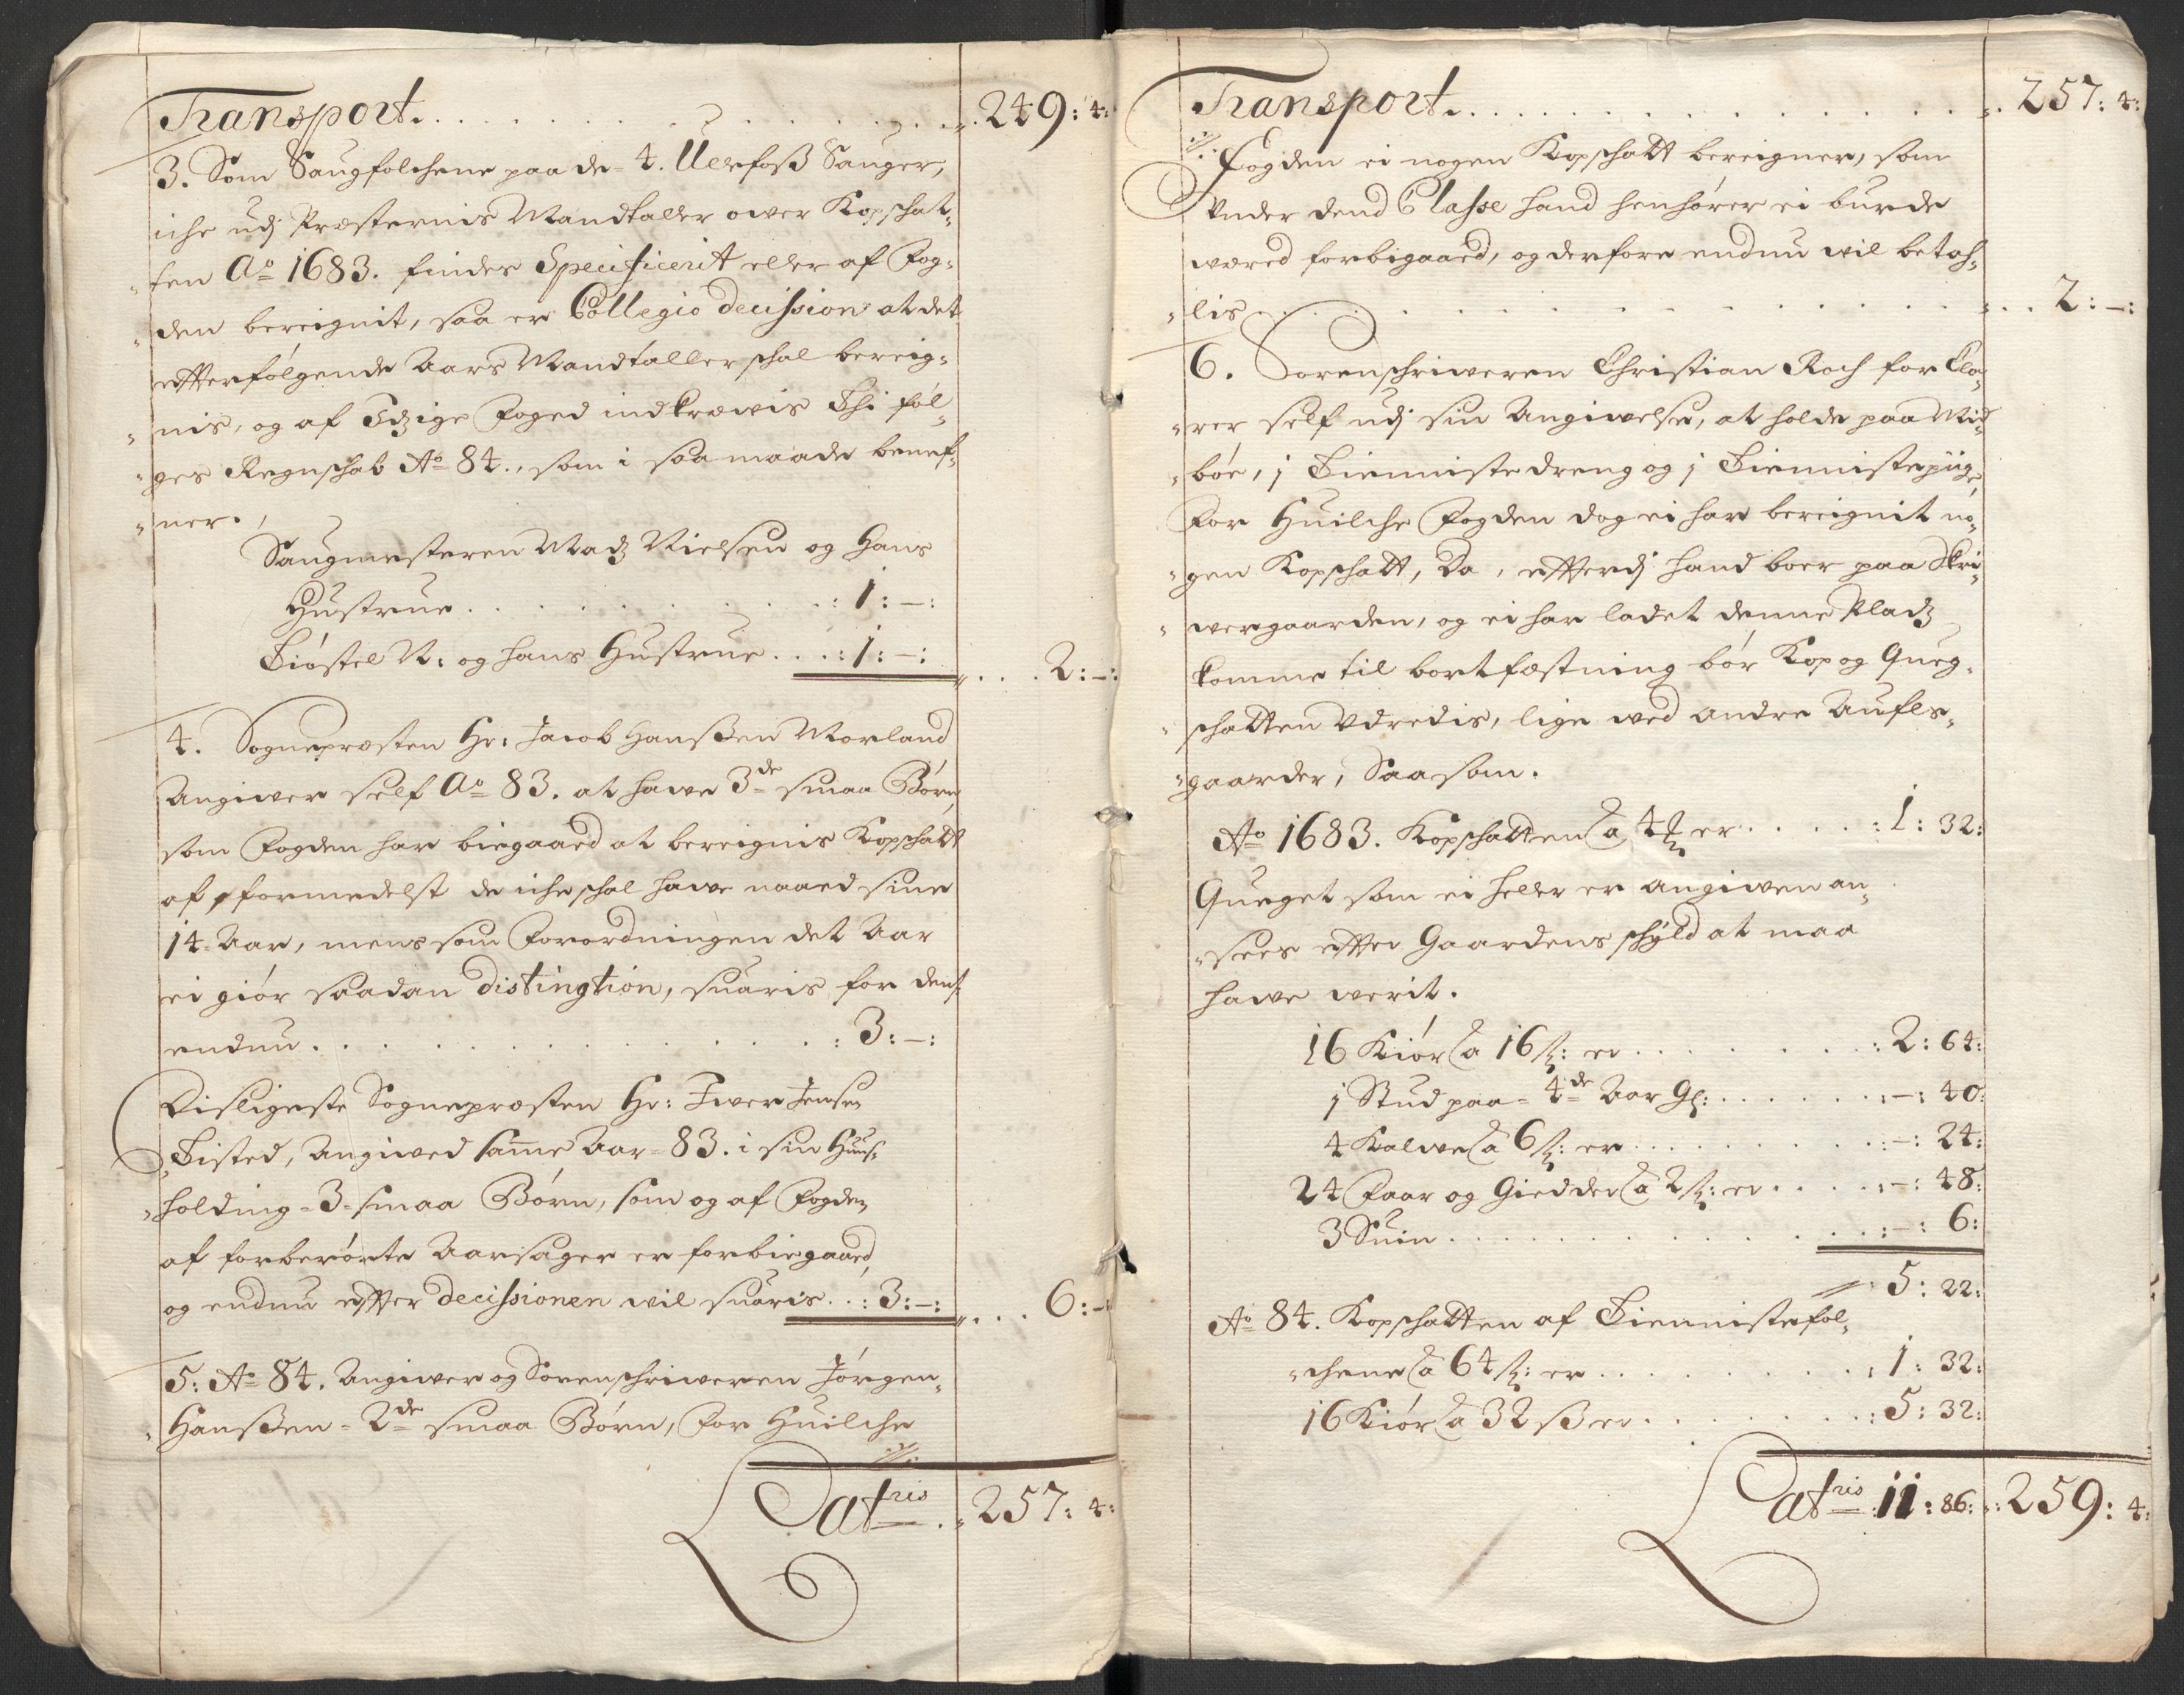 Transport. . . . . . . . . . . . . 249: 4:
3. Som Saugfolchene paa de 4. Ulefoss Sauger,
iche udj Præsternis Mandtaller ower Kopschat-
ten Ao 1683. findes Specificerit eller af Fog-
den bereignit, saa er Collegio decission at det
effterfølgende Aars Mandtaller schal bereig-
nis, og af Idzige Foged indkræwis Thi føl-
ges Regnschab Ao 84., som i saa maade benef-
ner.
Saugmesteren Madz Nielsen og Hans
Hustrue . . . . . . . . : 1: –:
Kiøstel N: og hans Hustrue . . . : 1: –: . . . 2: –:
4. Sognepræsten Hr: Jacob Hanssen Morland
Angiwer self Ao 83. at hawe 3de smaa Børn,
som Fogden har biegaaed at bereignis Kopschatt
af, formedelst de iche schal hawe naaed sine
14 Aar, mens som Forordningen det Aar
ei giør saadan distingtion, suaris for dem
endnu . . . . . . . . . . . : 3: –:
Disligeste Sognepræsten Hr: Iwer Jensen
Tisted, Angiwed samme Aar 83. i sin Huus-
holding 3 smaa Børn, som og af Fogden
af forberørte Aarsager er forbiegaaed,
og endnu effter decissionen wil suaris . . : 3: –: . . . 6: –:
5: Ao 84. Angiwer og Sorenschriweren Jørgen
Hanssen 2de smaa Børn, for Huilche
Latris . 257: 4:
Transport. . . . . . . . . . . . . 257: 4:
Fogden ei nogen Kopschatt bereigner, som
under dend Classe hand henhører ei burde
wæred forbigaaed, og derfore endnu wil betah-
lis . . . . . . . . . . . . . 2: –:
6. Sorenschriweren Christian Koch for Cla-
rer self udj sin Angiwelse, at holde paa Mid-
bøe, 1 Tienniste dreng og 1 Tiennistepiige,
For Huilche Fogden dog ei har bereignit no-
gen Kopschatt, Da, effterdj hand boer paa Skri-
wergaarden, og ei har ladet denne Pladz
komme til bortfæstning bør Kop og Queg-
schatten Udredis, lige wed andre Aufls-
gaarder, Saasom.
Ao 1683. Kopschatten a 4 er . . . . : 1: 32:
Queget som ei heller er angiwen an-
sees effter Gaardens schyld at maa
hawe werit.
16 Kiør a 16 s: er . . . . . . . : 2: 64:
1 Stud paa 4de Aar Gl: . . . . . . : –: 40:
4 Kalwe a 6 s: er . . . . . . . . : –: 24:
24 Faar og Giedder a 2 s: er . . . . : –: 48:
3 Suin . . . . . . . . . . . . : –: 6:
5: 22:
Ao 84. Kopschatten af Tiennistefol-
chene a 64 s: er . . . . . . . . : 1: 32:
16 Kiør a 32 ss er . . . . . . . . : 5: 32:
Latris 11: 86: 259: 4: